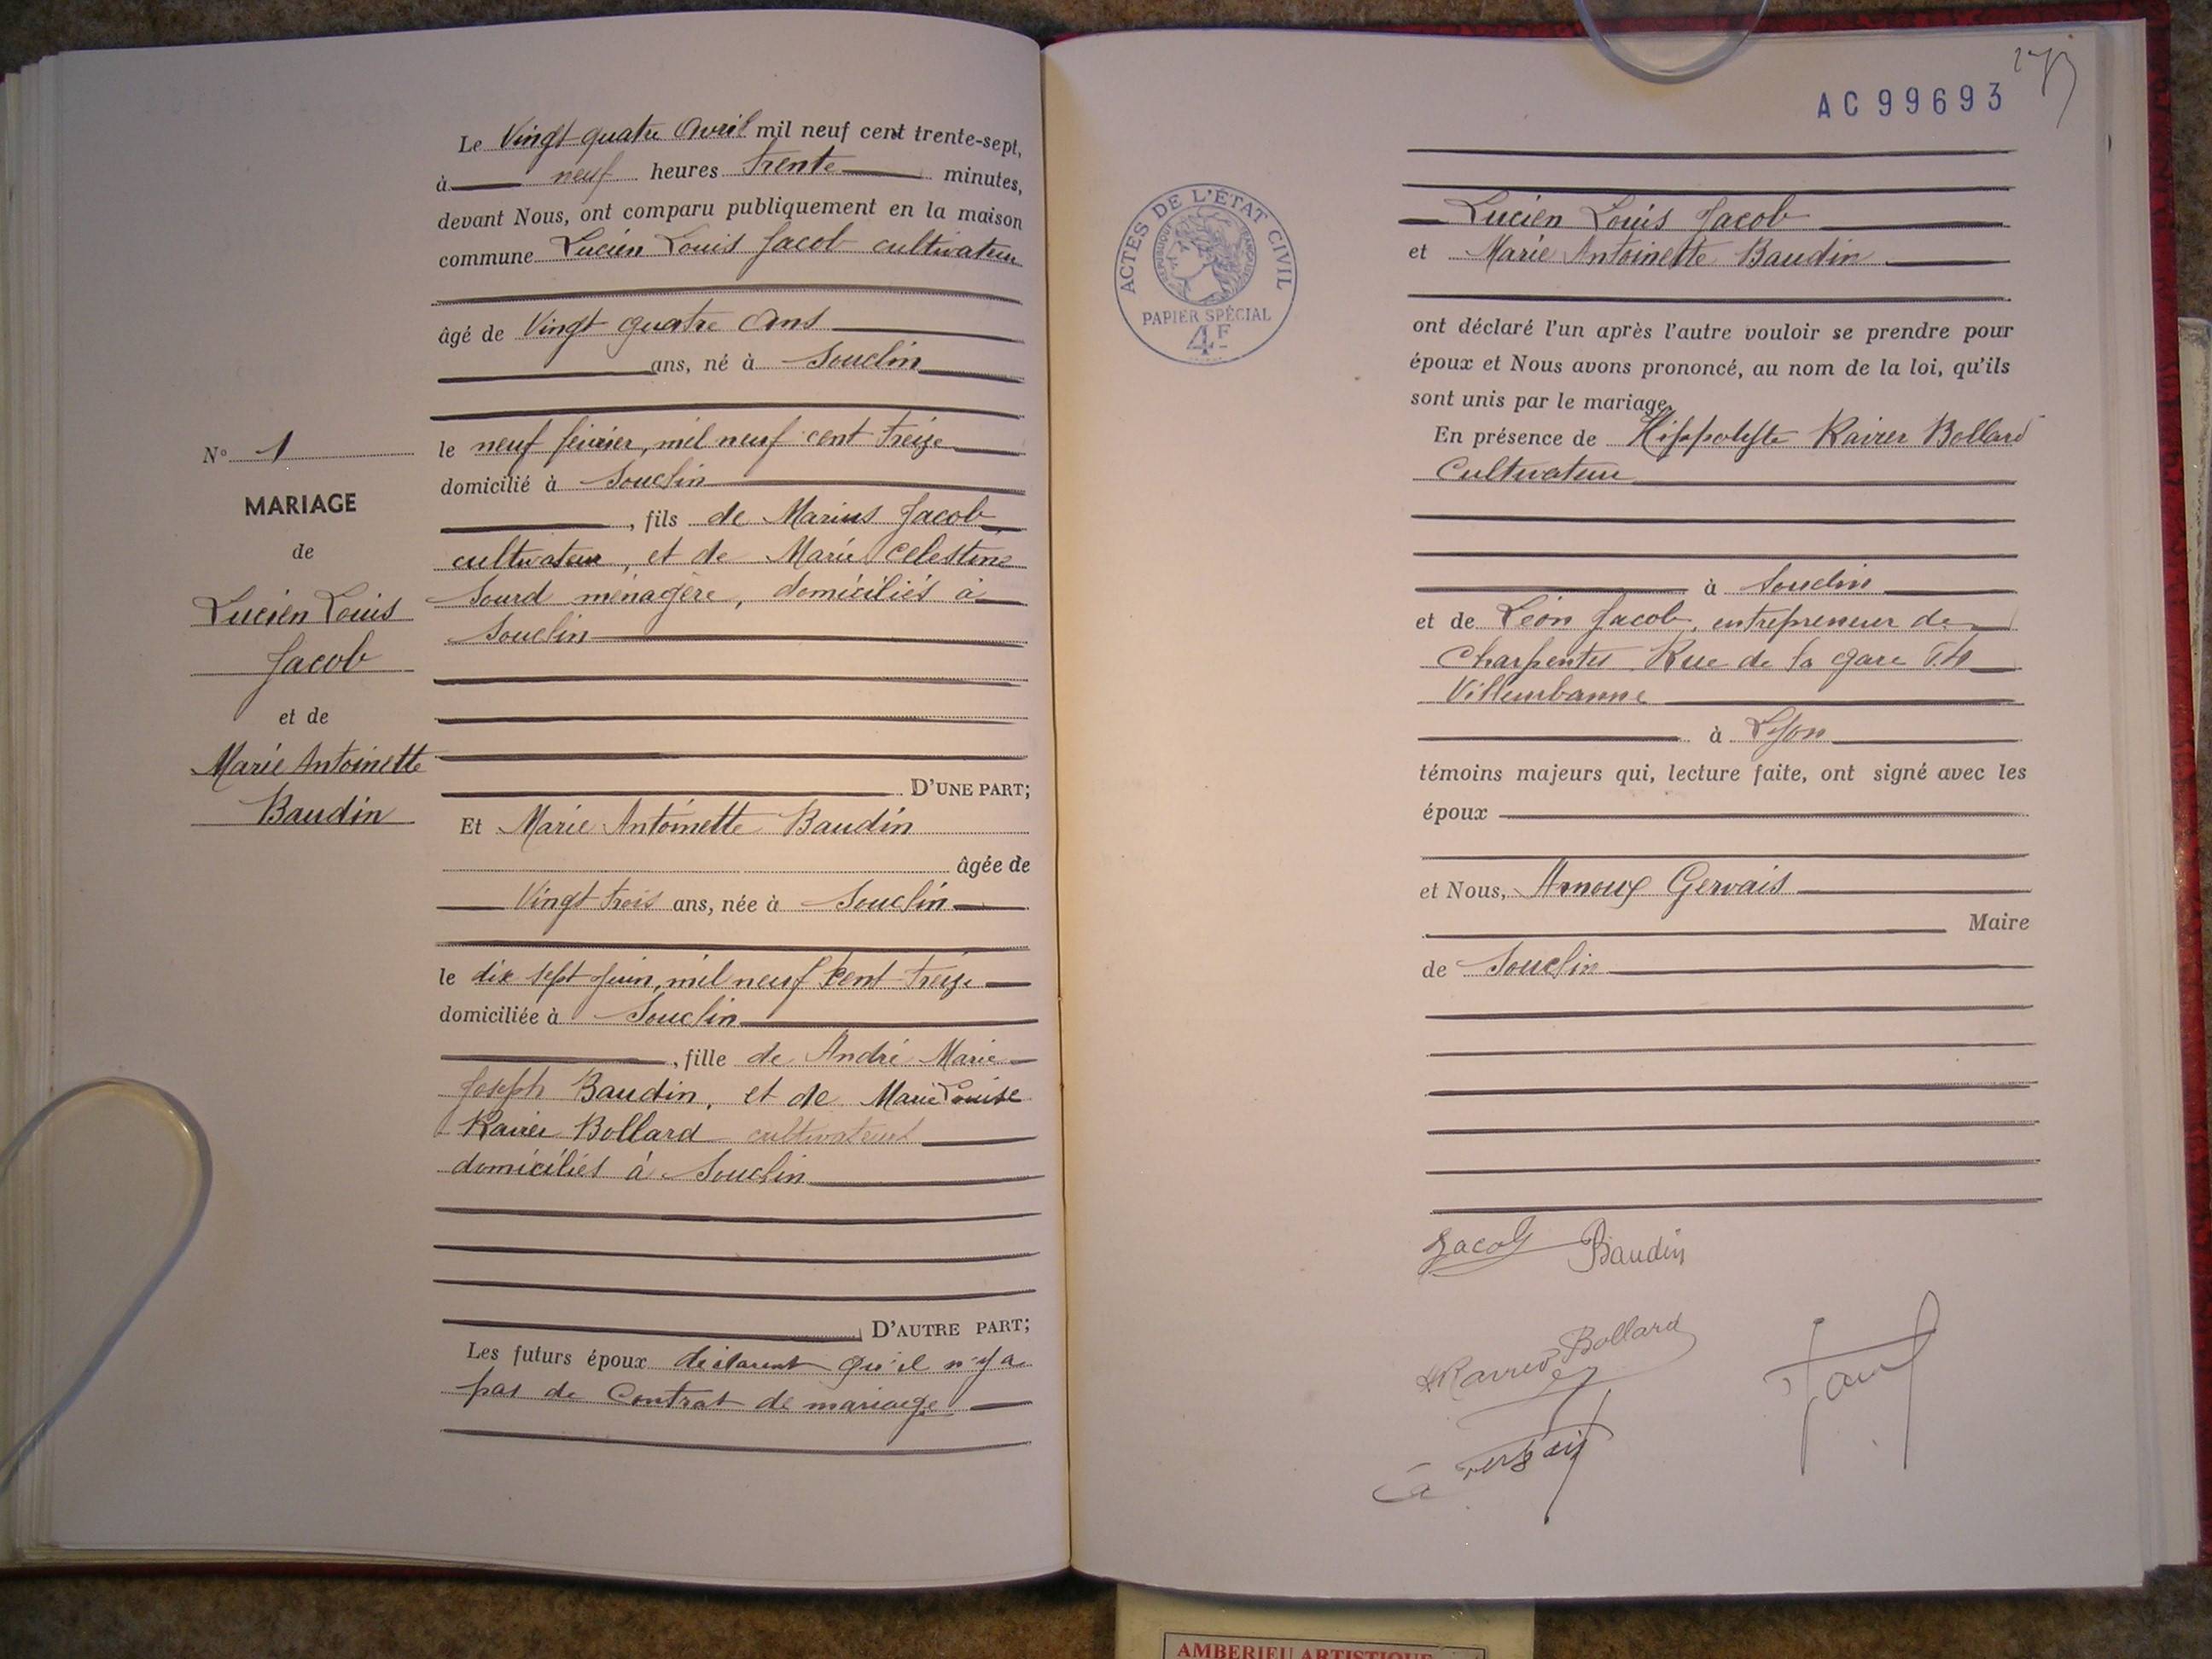 Le Vingt quatre Avril mil neuf cent trente-sept,
à neuf heures trente minutes,
devant Nous, ont comparu publiquement en la maison
commune Lucien Louis Jacob cultivateur
âgé de Vingt quatre ans
ans, né à Souclin
le neuf février, mil neuf cent treize
domicilié à Souclin
, fils de Marius Jacob
cultivateur, et de Marie Celestine
Sourd ménagère, domiciliés à
Souclin
D'UNE PART;
Et Marie Antoinette Baudin
âgée de
Vingt trois ans, née à Souclin
le dix sept juin, mil neuf cent treize
domiciliée à Souclin
, fille de André Marie
Joseph Baudin, et de Marie Louise
Ravier Bollard cultivateurs
domiciliés à Souclin
D'AUTRE PART;
Les futurs époux déclarent qu'il n'y a
pas de Contrat de mariage
N° 1
MARIAGE
de
Lucien Louis
Jacob
et de
Marie Antoinette
Baudin
AC99693
ACTES DE L'ÉTAT CIVIL
RÉPUBLIQUE FRANÇAISE
PAPIER SPÉCIAL
4F
Lucien Louis Jacob
et Marie Antoinette Baudin
ont déclaré l'un après l'autre vouloir se prendre pour
époux et Nous avons prononcé, au nom de la loi, qu'ils
sont unis par le mariage.
En présence de Hippolyte Ravier Bollard
Cultivateur
à Souclin
et de Léon Jacob, entrepreneur de
Charpentes Rue de la gare
Villeurbanne
à Lyon
témoins majeurs qui, lecture faite, ont signé avec les
époux
et Nous, Arnoux Gervais
Maire
de Souclin
Jacob Baudin
Bollard
AMBERIEU ARTISTIQUE